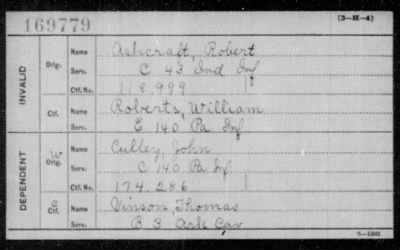 169779
(3-H-4)
INVALID
Orig.
Name Ashcraft, Robert
Serv. C 43 Ind Inf
Ctf. No. 118,999
Ctf.
Name Roberts, William
Serv. E 140 Pa Inf
DEPENDENT
W
Orig.
Name Culley, John
Serv. C 140 Pa Inf
Ctf. No. 174.286
Ctf.
Name Vinson, Thomas
Serv. B 3 Ark Cav